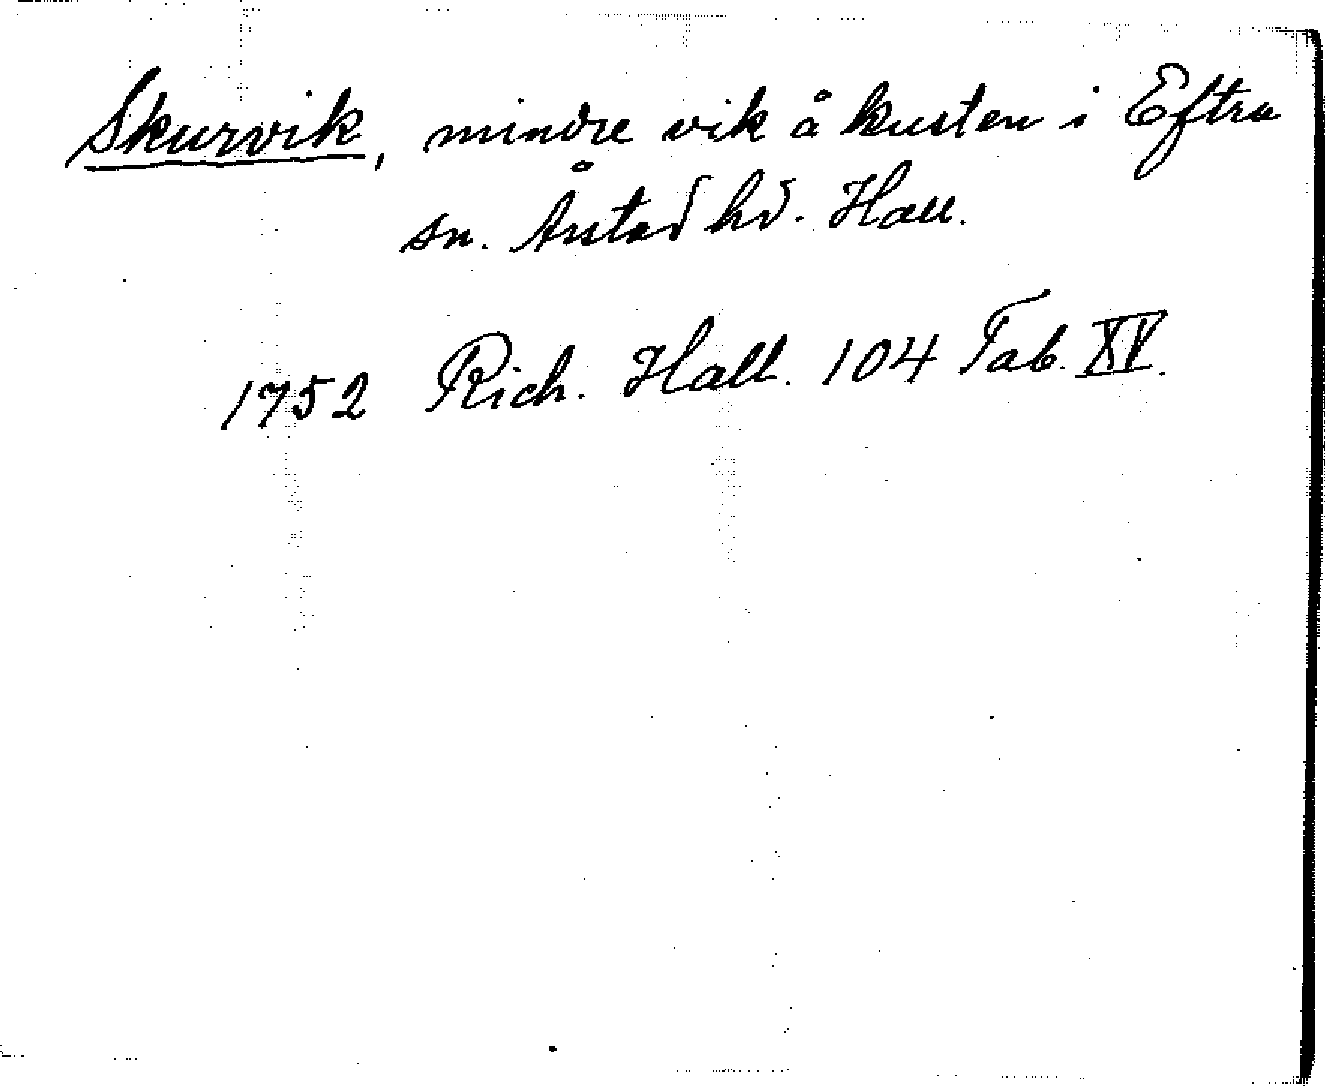 Skurvik, mindre vik å kusten i Eftra
sn. Årstad hd. Hall.
1752 Rich. Hall. 104 Tab. XV.